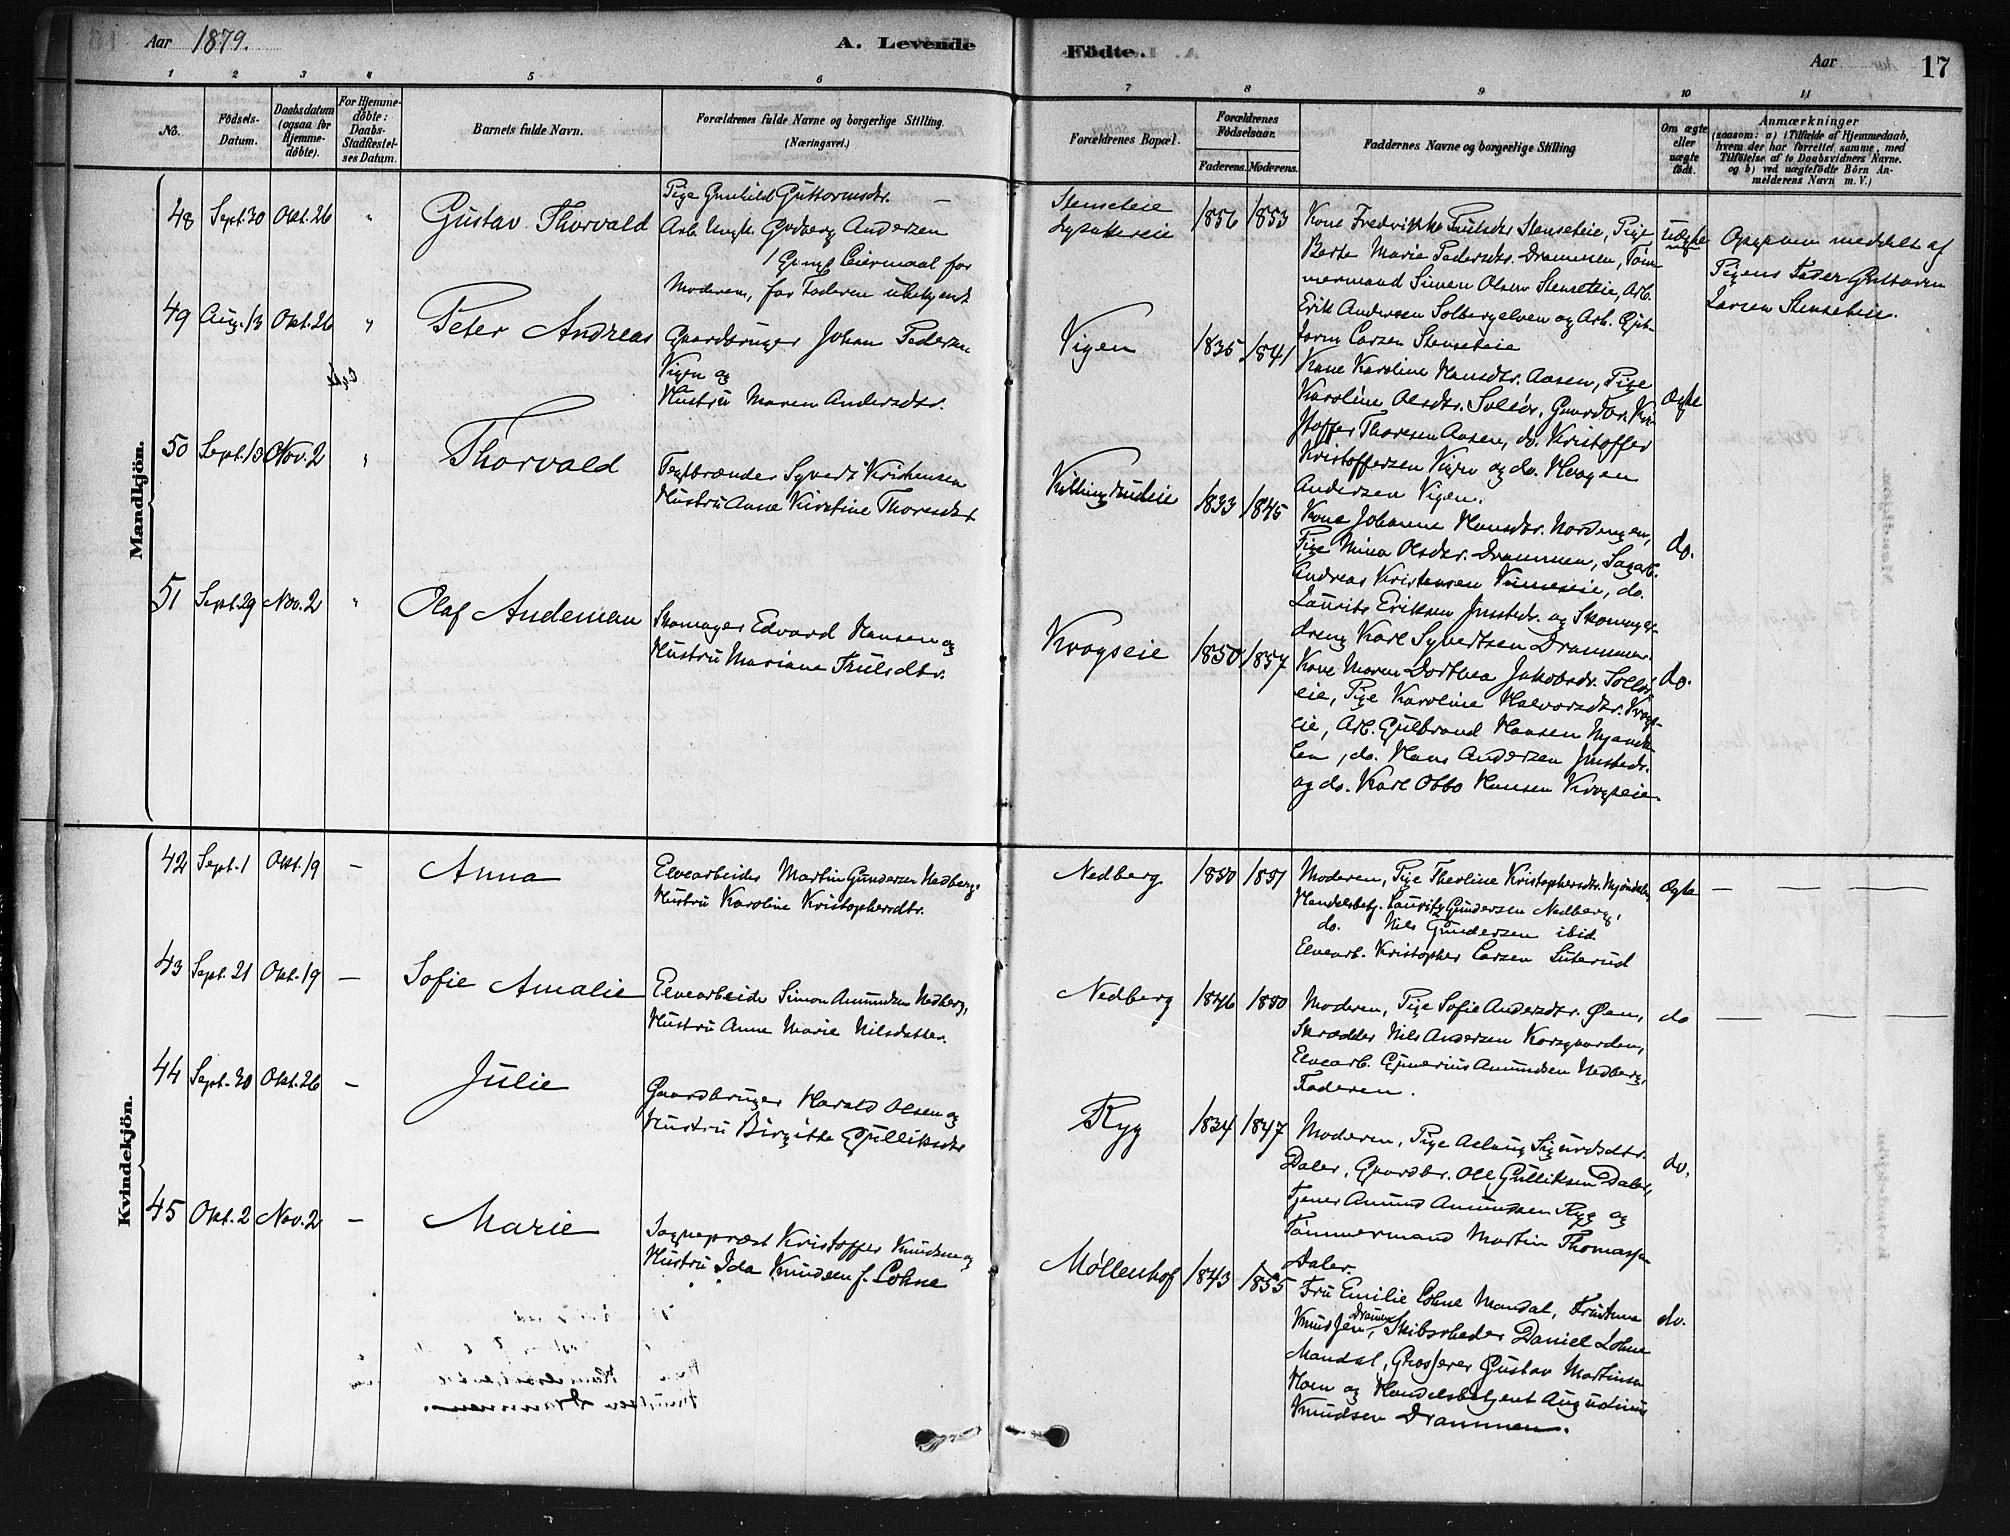 Aar 1879.
A. Levende
Födte.
Aar
17
1 2 3 4 5 6 7 8 9 10 11
No.
Födsels-
Datum.
Daabsdatum
(ogsaa for
Hjemme-
döbte).
For Hjemme-
döbte:
Daabs-
Stadfæstel-
ses Datum.
Barnets fulde Navn.
Forældrenes fulde Navne og borgerlige Stilling.
(Næringsvei.)
Forældrenes Bopæl.
Forældrenes
Födselsaar.
Faderens. Moderens.
Faddernes Navne og borgerlige Stilling
Om ægte
eller
uægte
födt.
Anmærkninger
(saasom: a) i Tilfælde af Hjemmedaab,
hvem der har forrettet samme, med
Tilföielse af to Daabsvidners Navne.
og b) ved uægtefödte Börn An-
melderens Navn m. V.)
Mandkjön.
48 Sept. 30 Okt. 26 " Gustav Thorvald
Pige Gunhild Guttormsdtr.
Arb. Ungk. Godberg Andersen
1 Gangs Leiermaal for
Moderen, for Faderen ubekjendt
Stenseteie
Lysakereie
1856 1853
Kone Fredrikke Trulsdtr Stenseteie, Pige
Berte Marie Pedersdtr. Drammen, Tøm-
mermand Simen Olsen Stenseteie, Arb.
Erik Andersen Solbergelven og Arb. Gut-
torm Larsen Stenseteie
uægte
Opgaven meddelt af
Pigens Fader Guttorm
Larsen Stenseteie.
49 Aug. 13 Okt. 26 " Peter Andreas
Gaardbruger Johan Pedersen
Vigen og
Hustru Maren Andersdtr.
Vigen
1835 1841
Kone Karoline Hansdtr. Aasen, Pige
Karoline Olsdtr. Solløs, Gaardbr. Kri-
stoffer Thoresen Aasen, do. Kristoffer
Kristoffersen Vigen og do. Haagen
Andersen Vigen.
Ægte
50 Sept. 13 Nov. 2 " Thorvald
Teglbrænder Syvert Kristensen
Hustru Anne Kirstine Thoresdtr
Killingrudeie
1833 1845
Kone Johanne Hansdtr. Nordengen,
Pige Mina Olsdtr. Drammen, Sagarb.
Andreas Kristensen Vimeseie, do.
Laurits Eriksen Jmstedr. og Skomager-
dreng Karl Syvertsen Drammen.
do.
51 Sept. 29 Nov. 2 " Olaf Andeman
Skomager Edvard Hansen og
Hustru Mariane Trulsdtr.
Krogseie
1850 1857
Kone Maren Dorthea Jakobsdr. Solløs-
eie, Pige Karoline Halvorsdtr. Krogs-
eie, Arb. Gulbrand Hansen
len, do. Hans Andersen Jmstedr.
og do. Karl Otto Hansen Krogseie.
do.
Kvindekjön.
42 Sept. 1 Okt. 19 — Anna
Elvearbeider Martin Gundersen Nedberg,
Hustru Karoline Kristophersdtr.
Nedberg
1850 1851
Moderen, Pige Theoline Kristophersdtr. Mjøndalen
Handelsbetj. Lauritz Gundersen Nedberg,
do. Nils Gundersen ibid
Elvearb. Kristopher Larsen Suterud
Ægte
43 Sept. 21 Okt. 19 — Sofie Amalie
Elvearbeider Simon Amundsen Nedberg,
Hustru Anne Marie Nilsdatter.
Nedberg
1846 1850
Moderen, Pige Sofie Andersdtr. Øen,
Skrædder Nils Andersen Korsgaarden,
Elvearb. Gunerius Amundsen Nedberg,
Faderen.
do
44 Sept. 30 Okt. 26 — Julie
Gaardbruger Harald Olsen og
Hustru Birgitte Gulliksdtr
Ryg
1834 1847
Moderen, Pige Aslaug Sigurdsdtr.
Daler, Gaardbr. Ole Gulliksen Daler,
Tjener Amund Amundsen Ryg og
Tømmermand Martin Thomassen
Daler.
do.
45 Okt. 2 Nov. 2 — Marie
Sognepræst Kristoffer Knudsen og
Hustru Ida Knudsen f. Lohne
Møllenhof
1843 1855
Fru Emilie Lohne Mandal, Frue
Knudsen, Drammen, Skibsrheder Daniel Lohne
Mandal, Grosserer Gustav Martinsen
Horn og Handelsbetjent Augustinus
Knudsen Drammen.
do.